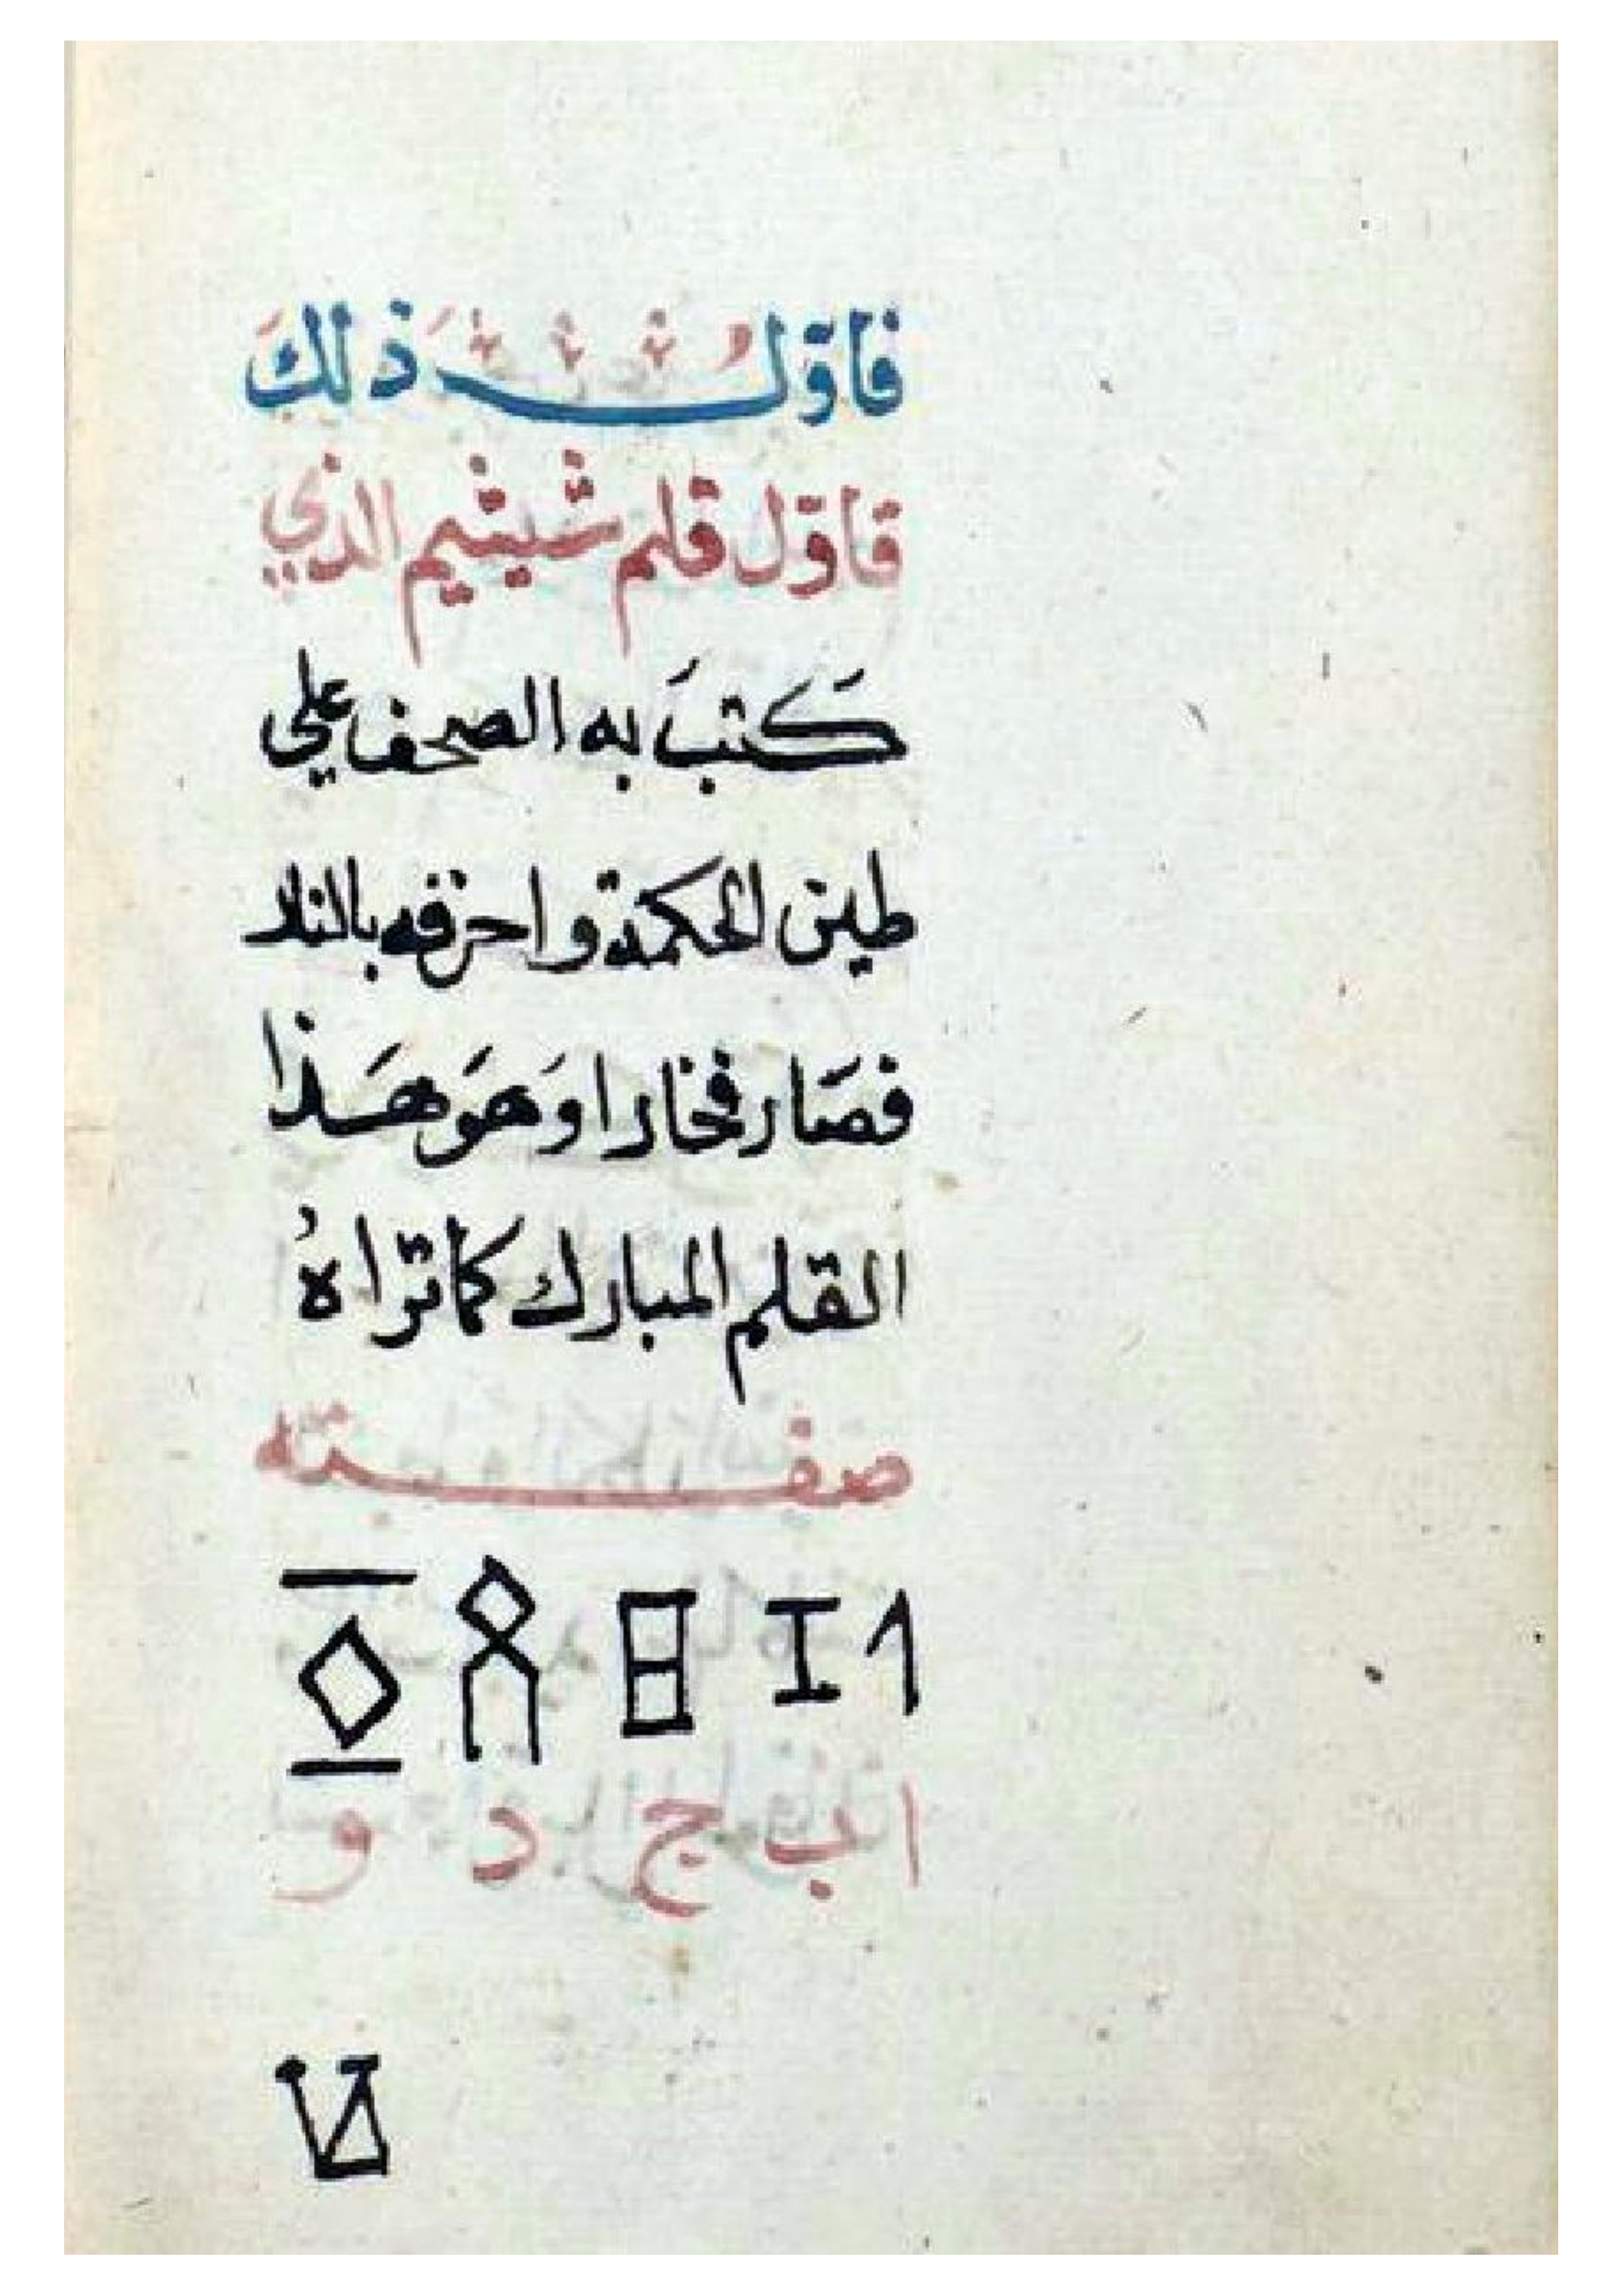 فاوّلُ ذلكَ
فاوّل قلم شيشيم الذي
كَتبَ به الصحف علي
طين الحكمة واحرقه بالنار
فصَار فخارا وَهوَ هَذا
القلم المبارك كما تراهُ
صفته
ا ب ج د و